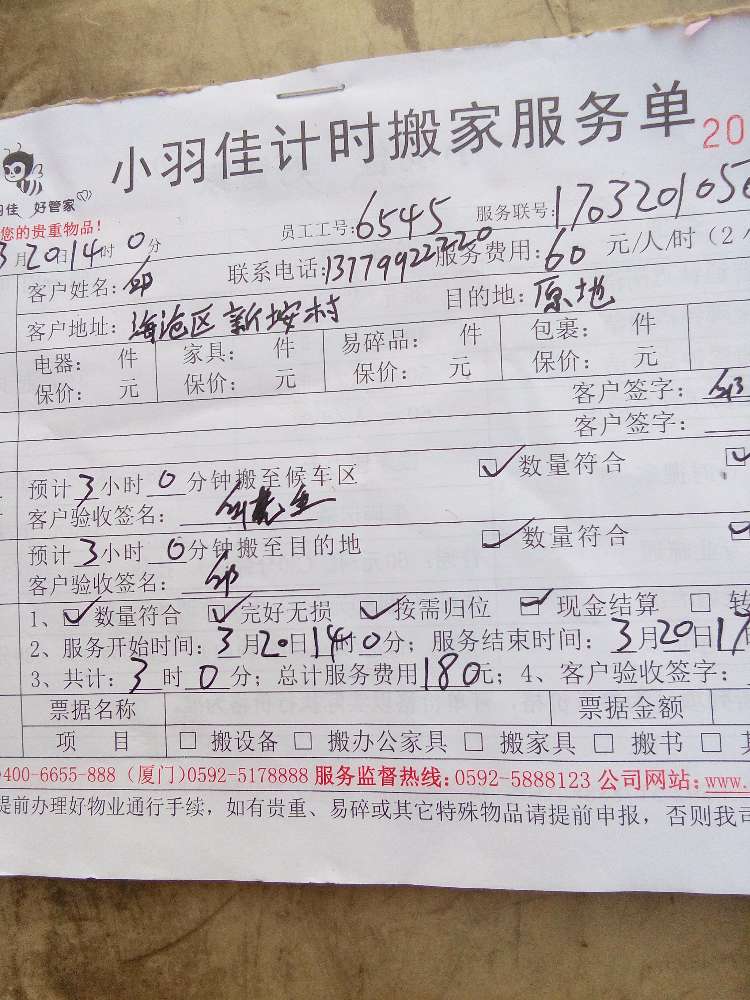 小羽佳计时搬家服务单 20
羽佳 好管家
您的贵重物品! 员工工号:6545 服务联号:170320105
3月20日14时0分 联系电话:13779922720 服务费用:60元/人/时(2
客户姓名:邱
客户地址:海沧区新垵村 目的地:原地
电器: 件 家具: 件 易碎品: 件 包裹: 件
保价: 元 保价: 元 保价: 元 保价: 元
客户签字:邱
客户签字:
预计3小时0分钟搬至候车区 ☑数量符合
客户验收签名:
预计3小时0分钟搬至目的地 ☑数量符合
客户验收签名:邱
1、☑数量符合 ☑完好无损 ☑按需归位 ☑现金结算 □转
2、服务开始时间:3月20日14时0分;服务结束时间:3月20日17
3、共计:3时0分;总计服务费用180元;4、客户验收签字:
票据名称 票据金额
项 目 □搬设备 □搬办公家具 □搬家具 □搬书 □其
400-6655-888 (厦门)0592-5178888 服务监督热线:0592-5888123 公司网站:www.
提前办理好物业通行手续,如有贵重、易碎或其它特殊物品请提前申报,否则我司